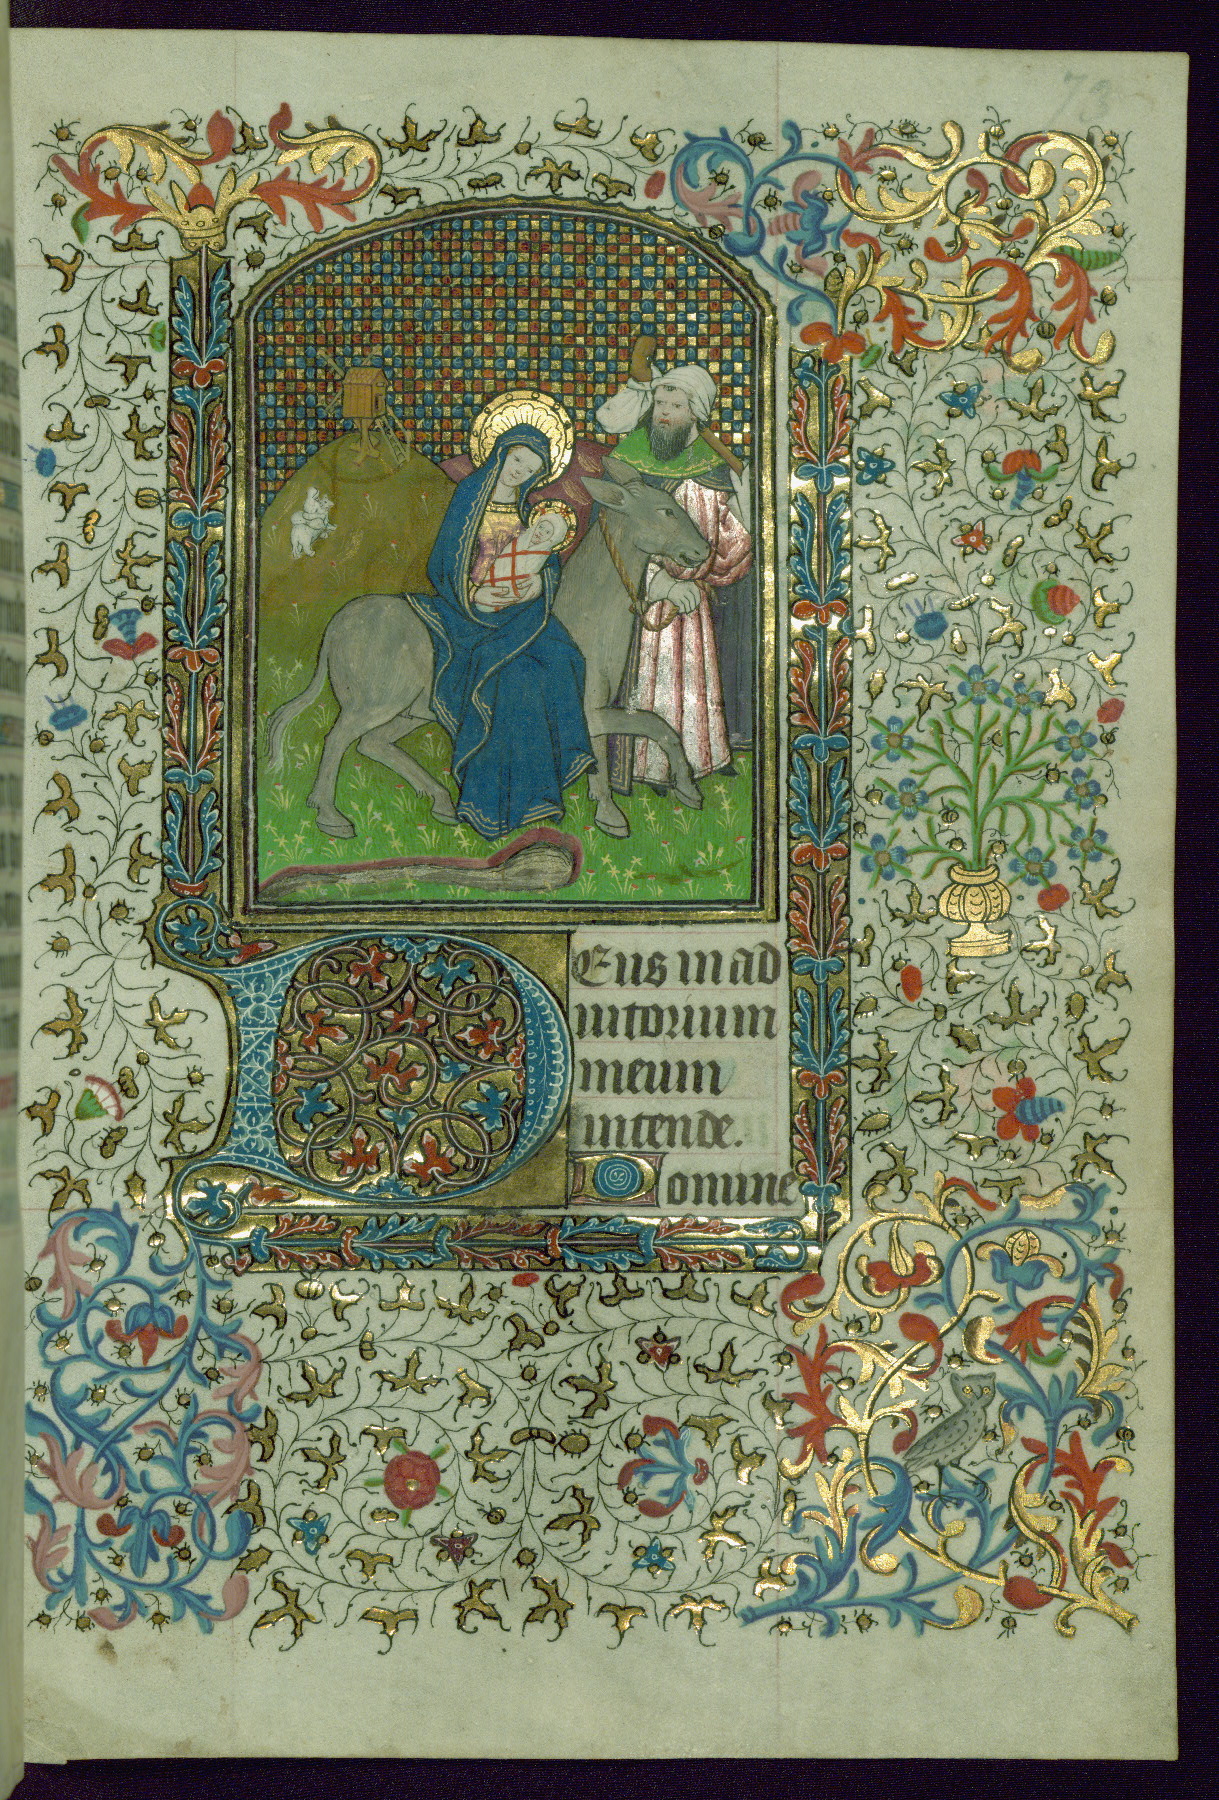 73
Deus in ad
iutorium
meum
intende.
Domine